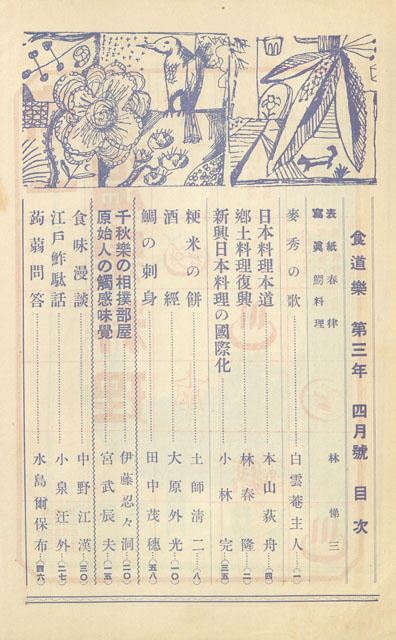 食道樂 第三年 四月號 目次
表紙 春律 林悌三
寫眞 鰐料理
麥秀の歌 白雲庵主人(一)
日本料理本道 本山荻舟(四)
鄕土料理復興 林春隆(二)
新興日本料理の國際化 小林完(三五)
粳米の餠 土師淸二(八)
酒經 大原外光(一〇)
鯛の刺身 田中茂穗(五八)
千秋樂の相撲部屋 伊藤忍々洞(二〇)
原始人の觸感味覺 宮武辰夫(一五)
食味漫談 中野江漢(三〇)
江戶鮓駄話 小泉迂外(二七)
蒟蒻問答 水島爾保布(四六)